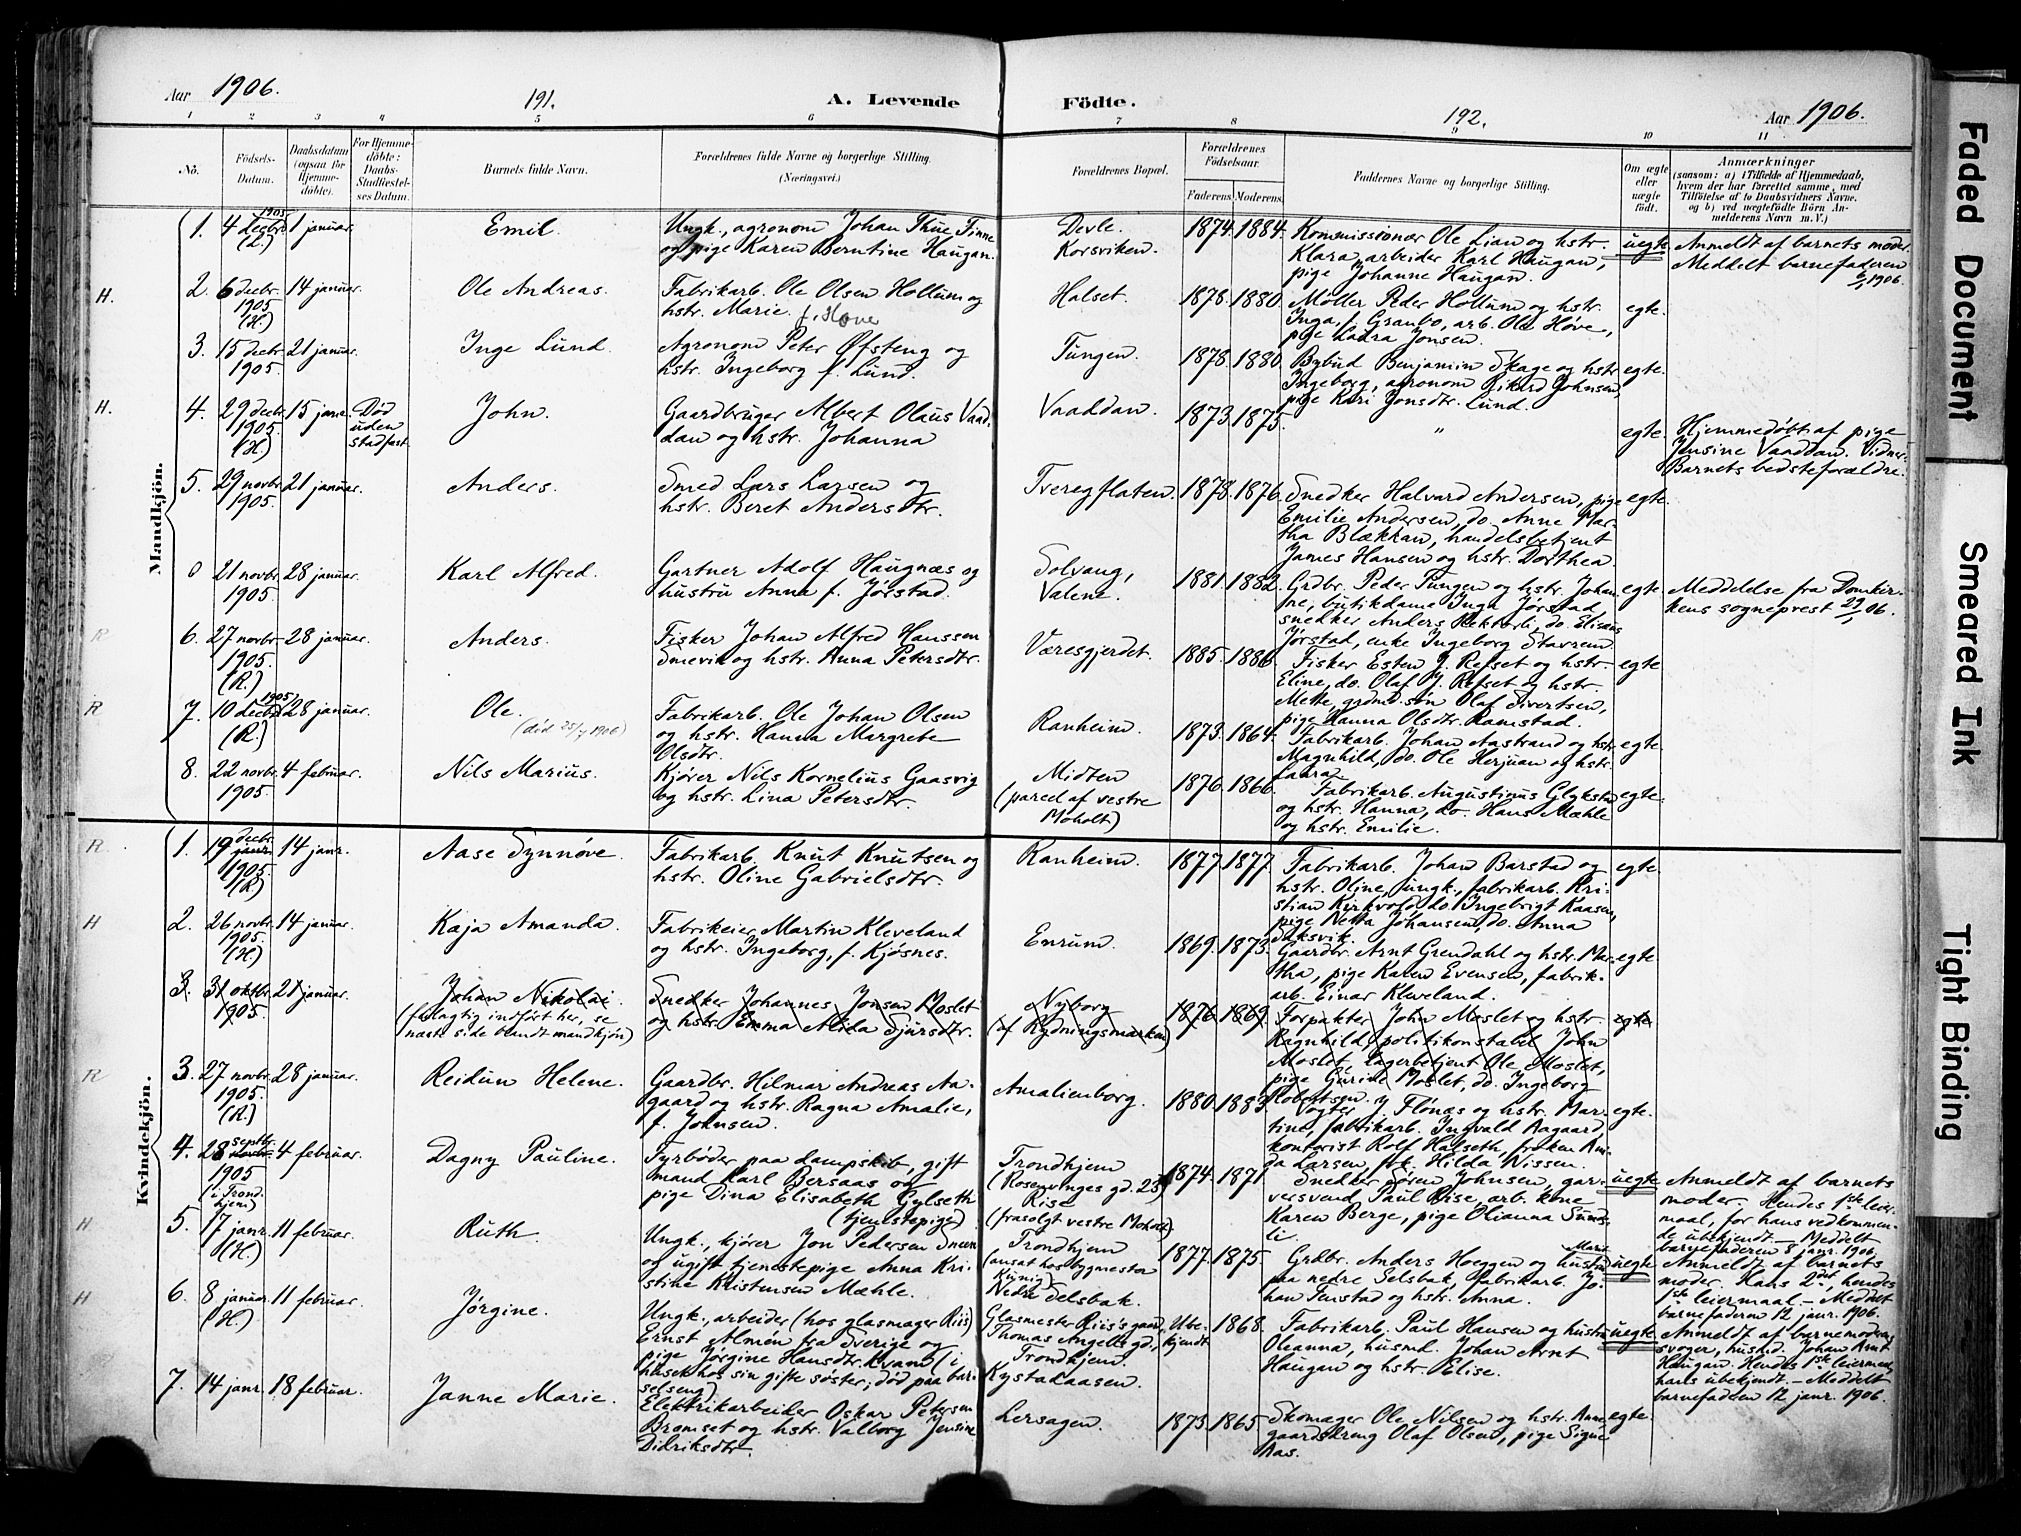 Aar 1906. 191. A. Levende Födte. 192. Aar 1906.
1 2 3 4 5 6 7 8 9 10 11
No.
Födsels-
Datum.
Daabsdatum
(ogsaa for
Hjemme-
döbte).
For Hjemme-
döbte:
Daabs-
Stadfæstel-
ses Datum.
Barnets fulde Navn.
Forældrenes fulde Navne og borgerlige Stilling.
(Næringsvei.)
Forældrenes Bopæl.
Forældrenes
Födselsaar.
Faderens. Moderens.
Faddernes Navne og borgerlige Stilling.
Om ægte
eller
uægte
født.
Anmærkninger
(saasom: a) i Tilfælde af Hjemmedaab,
hvem der har forrettet samme, med
Tilföielse af to Daabsvidners Navne.
og b) ved uægtefödte Börn An-
melderens Navn m. V.)
Mandkjön.
1. 4 decbr. 1905 (L) 1 januar. Emil.
Ungk., agronom Johan Thue Finne
og pige Karen Berntine Haugan.
Devle.
Korsviken.
1874. 1884.
Kommissionær Ole Lian og hstr.
Klara, arbeider Karl Haugan,
pige Johanne Haugan.
uegte
Anmeldt af barnets moder.
Meddelt barnefaderen
1906.
H. 2. 6 decbr. 1905 (H.) 14 januar. Ole Andreas.
Fabrikarb. Ole Olsen Hollum og
hstr. Marie. f. Høve
Halset.
1878. 1880.
Møller Peder Hollum og hstr.
Inga, f. Granbo, arb. Ole Høve,
pige Laura Jonsen.
egte.
3. 15 decbr. 1905. 21 januar. Inge Lund.
Agronom Peter Øfsteng og
hstr. Ingeborg f. Lund.
Tungen.
1878. 1880.
Bybud Benjamin Skage og hstr.
Ingeborg, agronom Rikard Johnsen,
pige Kari Jonsdtr. Lund.
egte.
H. 4. 29 decbr. 1905. (H.) 15 janr. Død
uden
stadfæst.
John.
Gaardbruger Albert Olaus Vaad-
dan og hstr. Johanna
Vaaddan.
1873. 1875.
"
egte.
Hjemmedøbt af pige
Jensine Vaaddan. Vidner
Barnets bedsteforældre.
5. 29 novbr. 1905. 21 januar. Anders.
Smed Lars Larsen og
hstr. Beret Andersdtr.
Tveregflaten.
1878. 1876.
Snedker Halvard Andersen, pige
Emilie Andersen, do. Anne Mar-
tha Blækkan, handelsbetjent
James Hansen og hstr. Dorthea.
egte.
0 21 novbr. 1905. 28 januar. Karl Alfred.
Gartner Adolf Haugnæs og
hustru Anna f. Jørstad.
Solvang,
Valene.
1881. 1882.
Grdbr. Peder Tungen og hstr. Johan-
ne, butikdame Inga Jørstad,
snedker Anders Rektarli, do. Elieus
Jørstad, enke Ingeborg Stavrem.
egte.
Meddelse fra Domkir-
kens sogneprest 29/1 06.
R 6. 27 novbr. 1905. (R.) 28 januar. Anders.
Fisker Johan Alfred Hanssen
Snevik og hstr. Anna Petersdtr.
Væresgjerdet.
1885. 1886.
Fisker Esten J. Refset og hstr.
Eline, do. Olaf J. Refset og hstr.
Mette, grdmd.søn Olaf Sivertsen,
pige Hanna Olsdtr. Ramstad.
egte
R 7. 10 decbr. 1905 (R.) 28 januar. Ole.
(død 25/7 1906)
Fabrikarb. Ole Johan Olsen
og hstr. Hanna Margrete
Olsdtr.
Ranheim.
1873. 1864.
Fabrikarb. Johan Aastrand og hstr.
Magnhild, do. Ole Herjuan og hstr.
Laura.
egte.
8. 22 novbr. 1905. 4 februar. Nils Marius.
Kjører Nils Kornelius Gaasvig
og hstr. Lina Petersdtr.
Midten
(parcel af vestre
Moholt)
1876. 1866.
Fabrikarb. Augustinus Glykstad
og hstr. Hanna, do. Hans Mæhle
og hstr. Emilie.
egte.
Kvindekjön.
R 1. 19 decbr. janr. 1905. (R) 14 janr. Aase Synnøve.
Fabrikarb. Knut Knutsen og
hstr. Oline Gabrielsdtr.
Ranheim.
1877. 1877.
Fabrikarb. Johan Barstad og
hstr. Oline, ungk., fabrikarb. Kri-
stian Kirkvold, do. Ingebrigt Kaasen,
pige Netta Johansen, do. Anna
Saksvik.
egte.
H 2. 26 novbr. 1905. (H.) 14 januar. Kaja Amanda.
Fabrikeier Martin Kleveland
og hstr. Ingeborg, f. Kjøsnes.
Enrum.
1869. 1873.
Gaardbr. Arnt Grendahl og hstr. Mar-
tha, pige Karen Evensen, fabrik-
arb. Einar Kleveland.
egte
3. 31 oktbr. 1905. 21 januar. Johan Nikolai.
(feilagtig indført her, se
næste side blandt mandkjøn)
Snedker Johannes Jonsen Moslet
og hstr. Emma Alida Sjursdtr.
Nyborg
(af Rydningsmarken)
1876. 1869.
Forpakter John Moslet og hstr.
Ragnhild, politikonstabel John
Moslet, lagerbetjent Ole Moslet,
pige Gurine Moslet, do. Ingeborg
Robertsen.
egte
R 3. 27 novbr. 1905. (R.) 28 januar. Reidun Helene.
Gaardbr. Hilmar Andreas Aa-
gaard og hstr. Ragna Amalie,
f. Johnsen.
Amalienborg.
1880. 1883.
Vogter J. Flønæs og hstr. Mar-
tine, fabrikarb. Ingvald Aagaard
kontorist Rolf Halseth, frøken An-
da Larsen, frk. Hilda Nissen.
egte.
4. 28 septbr. 1905 (i Trond-
hjem) 4 februar. Dagny Pauline.
Fyrbøder paa dampskib, gift
mand Karl Bersaas og
pige Dina Elisabeth Gylseth
(tjenestepige)
Trondhjem
(Rosenvinges gd. 23)
Rise
(frasolgt vestre Moholt)
1874. 1871
Snedker Søren Johnsen, gar-
versvend Paul Rise, arb. kone
Karen Berge, pige Olianna Sunds-
li.
uegte
Anmeldt af barnets
moder. Hendes 1ste leier-
maal, for hans vedkommen-
de ubekjendt. – Meddelt
barnefaderen 8 janr. 1906.
H 5. 17 janr. (H.) 11 februar. Ruth.
Ungk., kjører Jon Pedersen Sneen
og ugift tjenestepige Anna Kri-
stine Kristensen Mæhle.
Trondhjem
(ansat hos bygmester
Kunig)
Nedre Selsbak.
1877. 1875.
Grdbr. Anders Hoeggen og hustru Marit
paa nedre Selsbak, fabrikarb. Jo-
han Tenstad og hstr. Anna.
uegte
Anmeldt af barnets
moder. Hans 2det, hendes
1ste leiermaal. – Meddelt
barnefaderen 12 janr. 1906.
H 6. 8 januar. (H.) 11 februar. Jørgine.
Ungk., arbeider (hos glasmager Riis)
Ernst Almén fra Sverige og
pige Jørgine Hansdtr. Kvam (i
husek hos sin gifte søster; død paa bar-
selseng)
Glasmester Riis's gaard,
Thomas Angells gd.,
Trondhjem.
Kystadaasen.
Ube-
kjendt. 1868.
Fabrikarb. Paul Hansen og hustru
Oleanna, husmd. Johan Arnt
Haugan og hstr. Elise.
uegte
Anmeldt af barnemoderens
svoger, husmd. Johan Arnt
Haugan. Hendes 1ste leiermaal,
hans ubekjendt. – Meddelt
barnefaderen 12 janr. 1906.
7. 14 janr. 18 februar. Janne Marie.
Elektrikarbeider Oskar Petersen
Bromset og hstr. Valborg Jensine
Didriksdtr.
Lersagen.
1873. 1865.
Skomager Ole Nilsen og hstr. Anne,
gaardsdreng Olaf Olsen, pige Signe
Aas.
egte.
Faded Document
Smeared Ink
Tight Binding